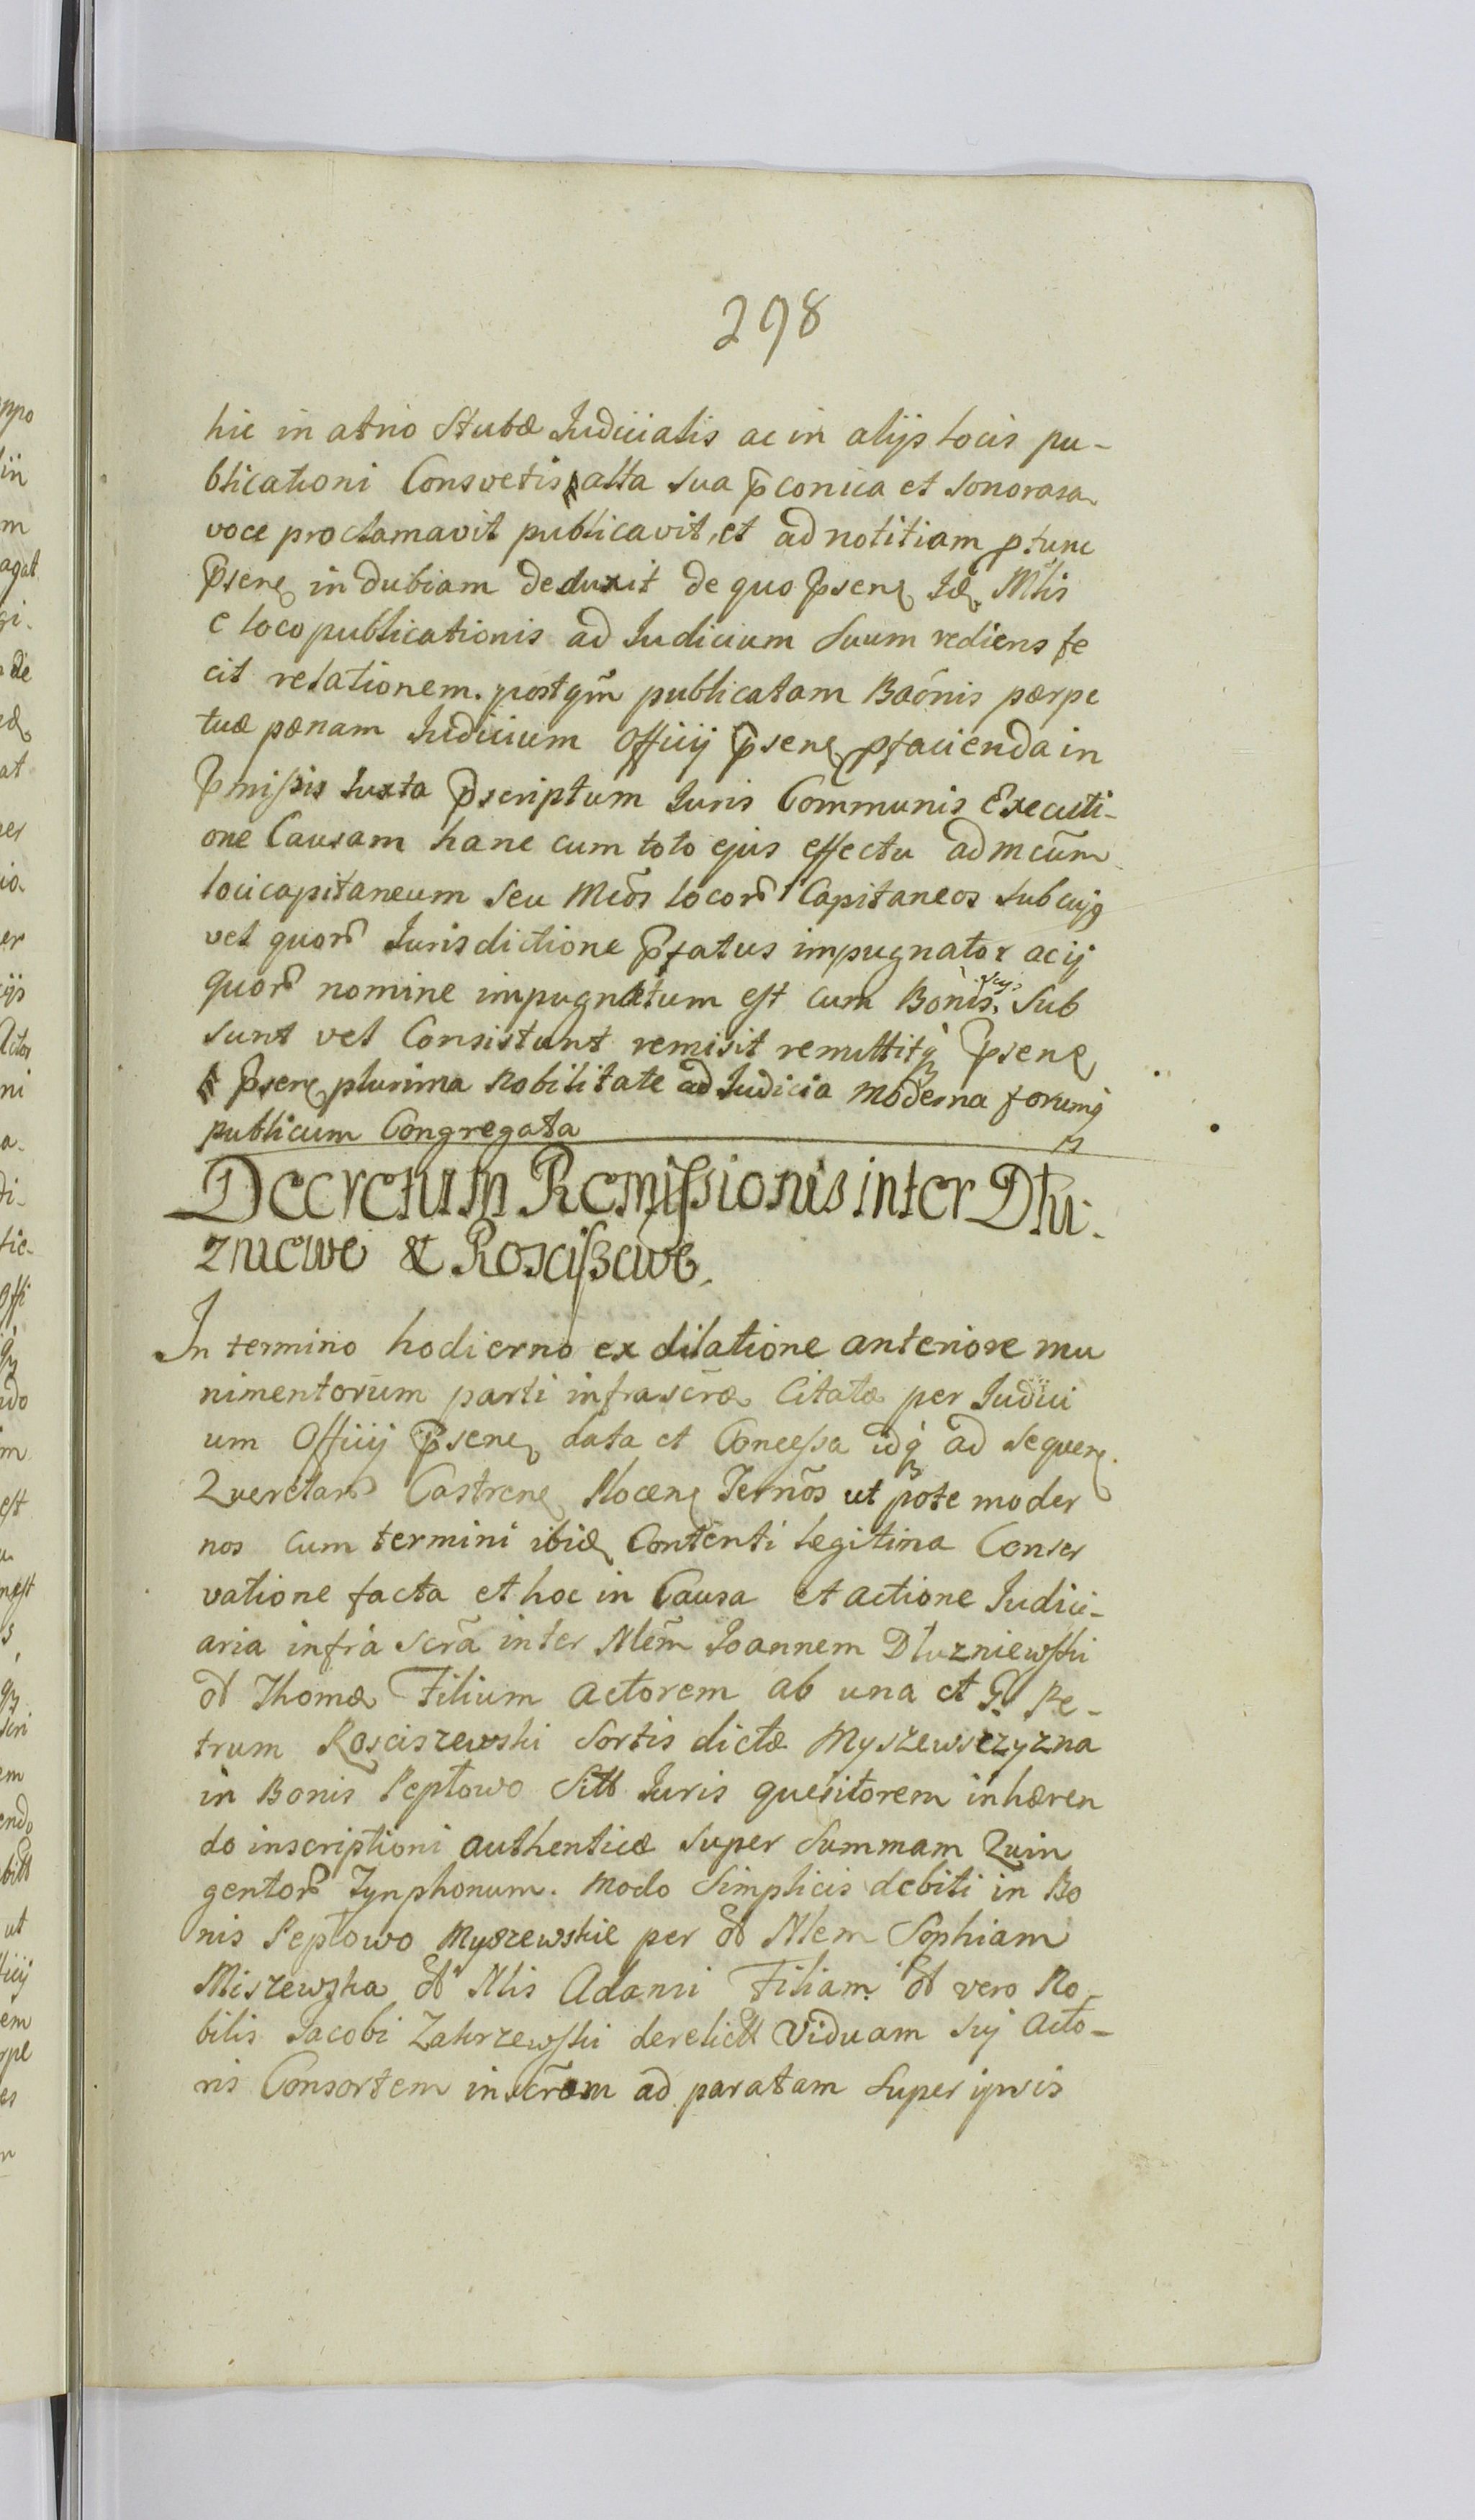 298
hic in atrio Stubæ Judicialis ac in alijs locis pu-
blicationi Consvetis alta sua p̄conica et sonorasa
voce proclamavit publicavit, et ad notitiam p tunc
P̄sene in dubiam deduxit de quo P̄sene Id. Mlis
e loco publicationis ad Judicium Suum rediens fe
cit relationem. postqm̄ publicatam Baōnis pærpe
tuæ pænam Judicium Officij P̄sene p facienda in
P̄missis Juxta P̄scriptum Juris Com̄munis Executi-
one Causam hanc cum toto ejus effectu ad mcūm
loci capitaneum seu Mcōs locor Capitaneos sub cujq
vel quor Jurisdictione P̄fatus impugnator ac ij
quor nomine impugnatum est cum Bonis suys Sub
sunt vel Consistunt remisit remittitq P̄sene
P̄sene plurima Nobilitate ad Judicia moderna forumq
publicum Congregata
Decretum Remissionis inter Dłu-
zniewo & Rosciszewo.
In termino hodierno ex dilatione anteriore mu
nimentorum parti infrascræ Citatæ per Judici
um Officij P̄sene data et Concessa idq ad sequen
Querelar Castrene Plocene Ternōs ut pote moder
nos cum termini ibid Contenti legitima Conser
vatione facta et hoc in Causa et actione Judici-
aria infra Scrā inter Nlem̄ Joannem Dłuzniewski
olt Thomæ Filium actorem ab una et G. Pe-
trum Rosciszewski Sortis dictæ Myszewszczyzna
in Bonis Pepłowo Sitt Juris quesitorem inhæren
do inscriptioni authenticæ super Summam Quin
gentor Tynphonum. modo Simplicis debiti in Bo
nis Pepłowo Myszewskie per olt Nlem Sophiam
Miszewska olt Nlis Adami Filiam olt vero No-
bilis Jacobi Zakrzewski derelictt Viduam sui acto-
ris Consortem inscrām ad paratam Super ipsis